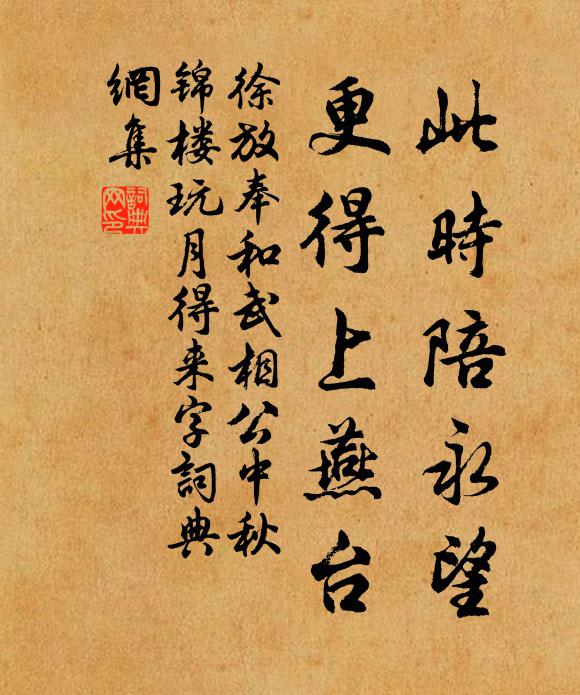 此時陪永望
更得上燕台
徐放奉和武相公中秋
锦楼玩月得来字詞典
網集
詞典
网印